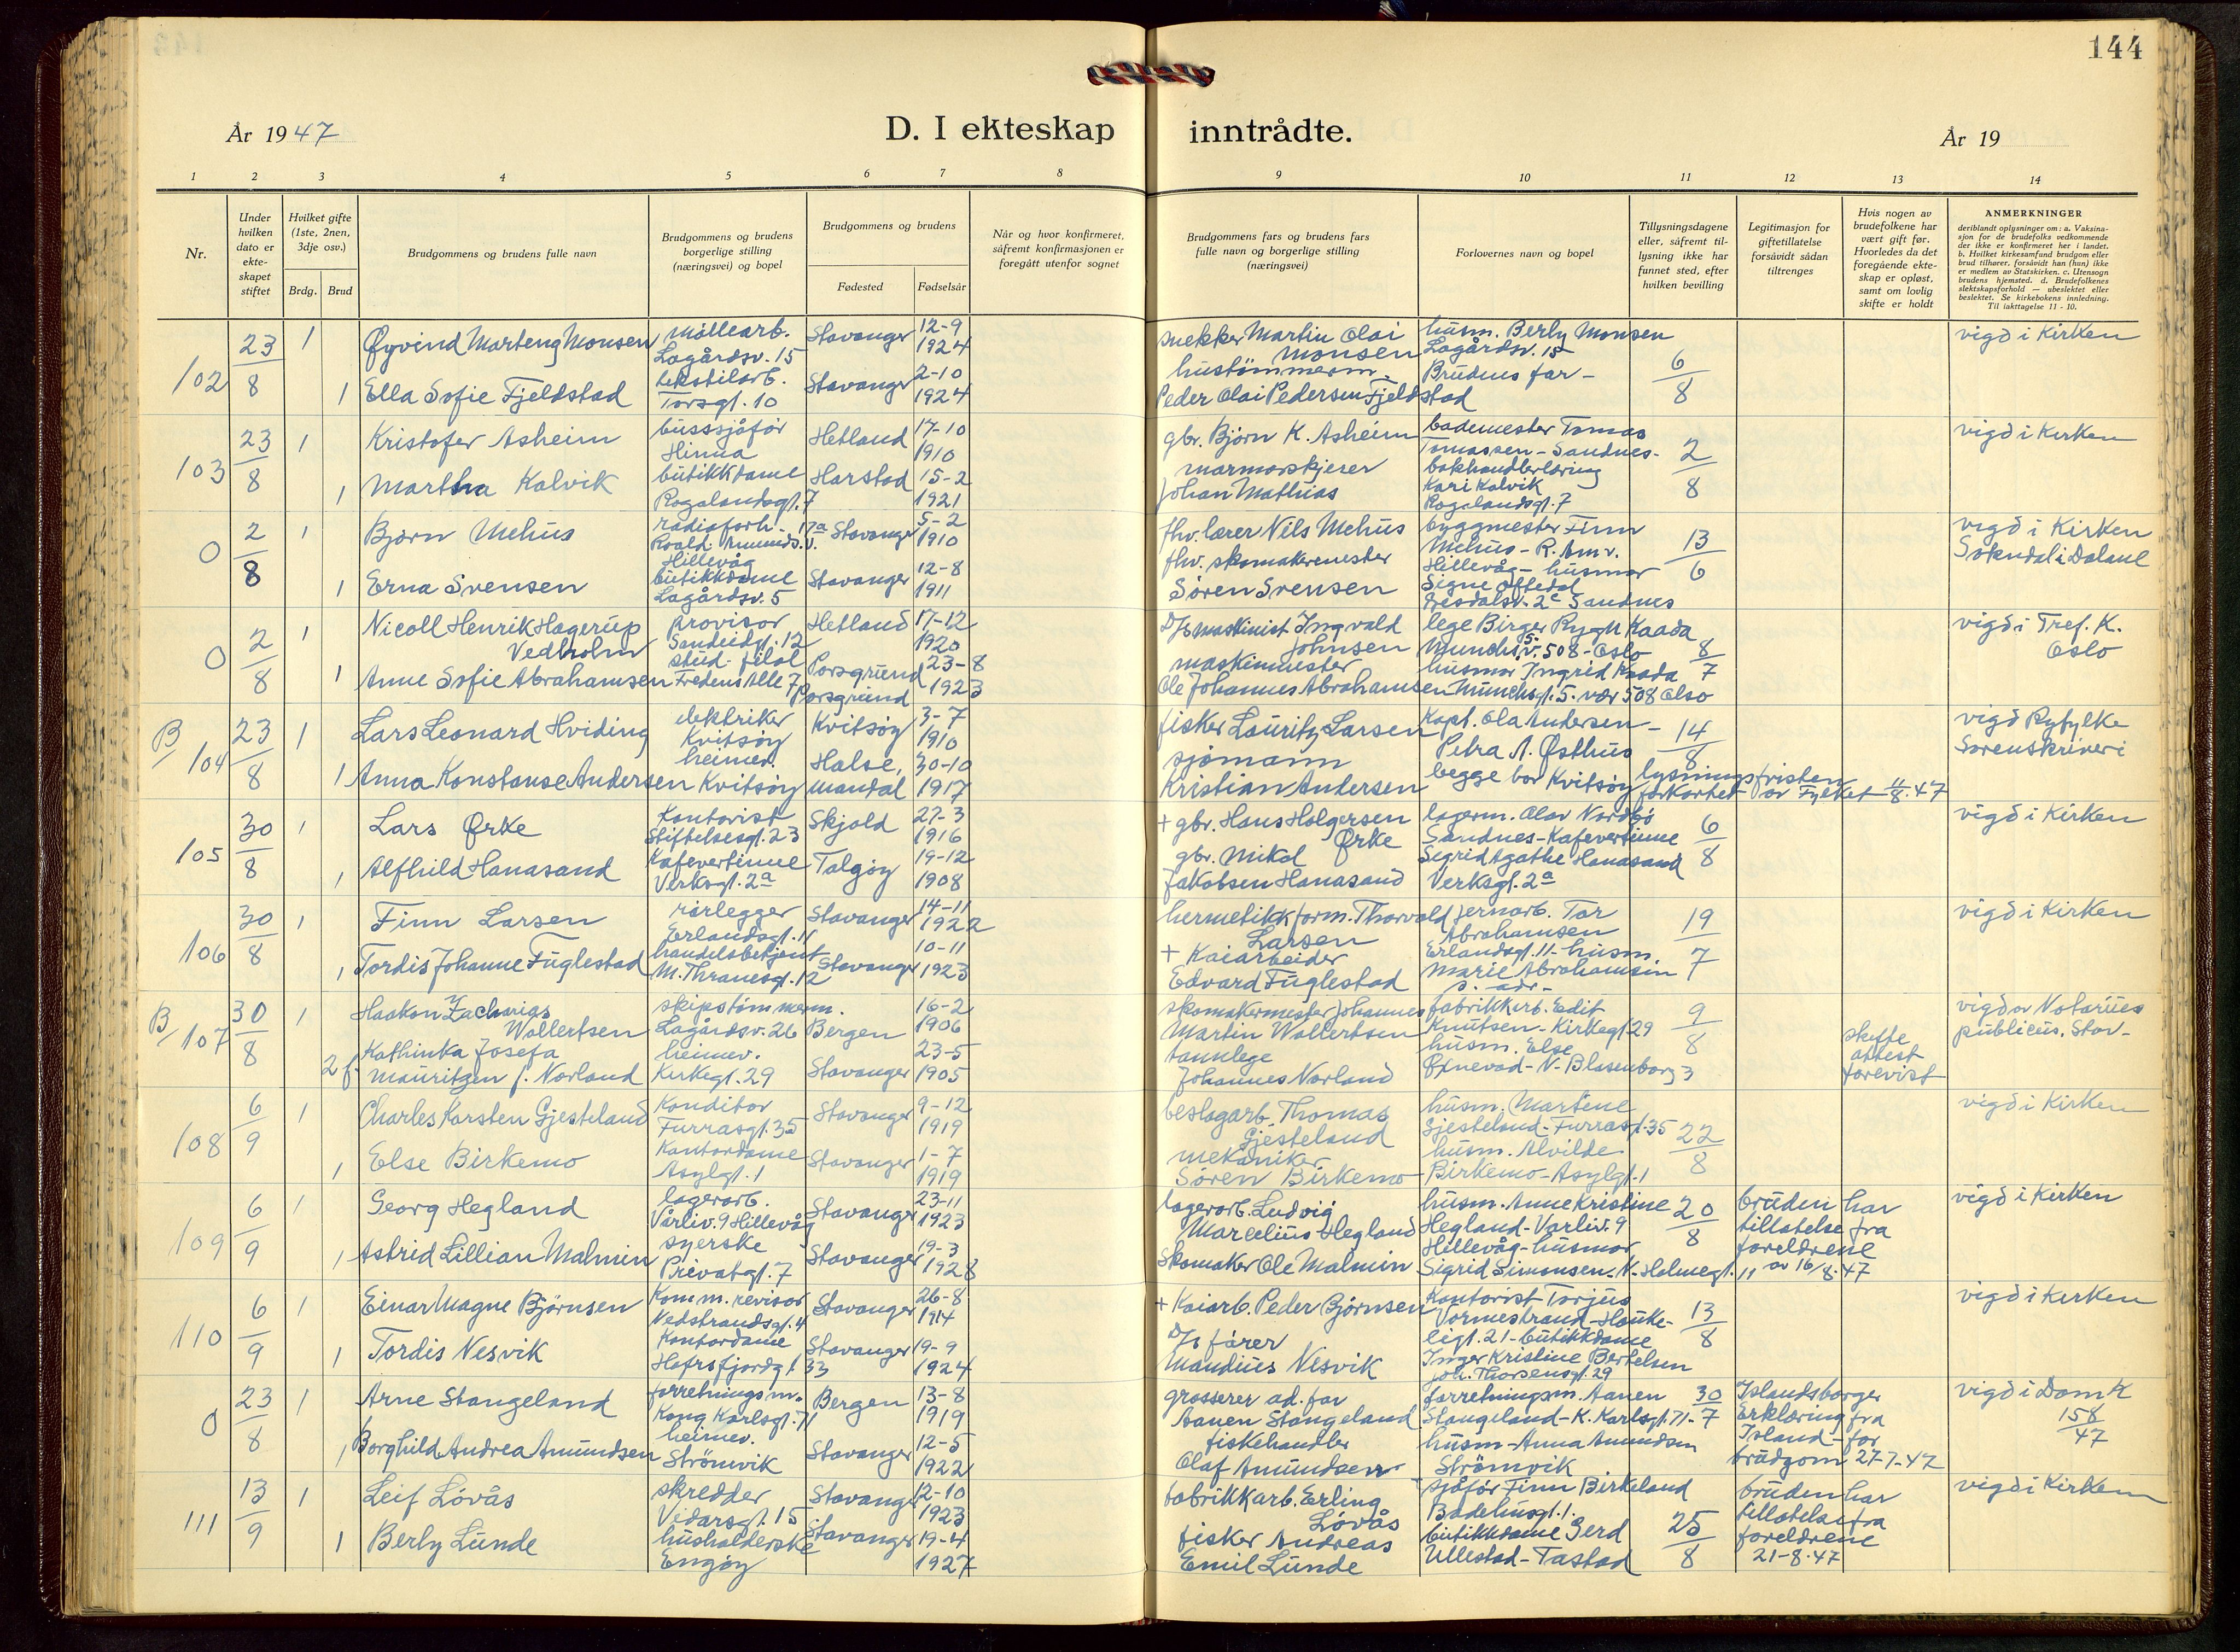 144
År 1947
D. I ekteskap inntrådte.
År 19
1 2 3 4 5 6 7 8 9 10 11 12 13 14
Nr.
Under hvilken dato er ekte-skapet stiftet
Hvilket gifte (1ste, 2nen, 3dje osv.)
Brdg. Brud
Brudgommens og brudens fulle navn
Brudgommens og brudens borgerlige stilling (næringsvei) og bopel
Brudgommens og brudens
Fødested
Fødselsår
Når og hvor konfirmeret, såfremt konfirmasjonen er foregått utenfor sognet
Brudgommens fars og brudens fars fulle navn og borgerlige stilling (næringsvei)
Forlovernes navn og bopel
Tillysningsdagene eller, såfremt til-lysning ikke har funnet sted, efter hvilken bevilling
Legitimasjon for giftetillatelse forsåvidt sådan tiltrenges
Hvis nogen av brudefolkene har vært gift før. Hvorledes da det foregående ekte-skap er opløst, samt om lovlig skifte er holdt
ANMERKNINGER
deriblandt oplysninger om: a. Vaksina-sjon for de brudefolks vedkommende der ikke er konfirmeret her i landet. b. Hvilket kirkesamfund brudgom eller brud tilhører, forsåvidt han (hun) ikke er medlem av Statskirken. c. Utensogn brudens hjemsted. d. Brudefolkenes slektskapsforhold — ubeslektet eller beslektet. Se kirkebokens innledning. Til iakttagelse 11 - 10.
102 23/8 1 Øyvind Marteng Monsen møllearb. Lagårdsv. 15 Stavanger 12-9 1924 snekker Martin Olai Monsen husm. Berly Monsen Lagårdsv. 15 6/8 vigd i Kirken
1 Ella Sofie Fjeldstad tekstilarb. Torsgt. 10 Stavanger 2-10 1924 hustømmerm. Peder Olai Pedersen Fjeldstad Brudens far -
103 23/8 1 Kristofer Asheim bussjåfør Hinna Hetland 17-10 1910 gbr. Bjørn K. Asheim bademester Tomas Tomassen - Sandnes - 2/8 vigd i Kirken
1 Martha Kalvik butikkdame Rogalandsgt. 7 Harstad 15-2 1921 marmorskjerer Johan Mathias bokhandlerlæring Kari Kalvik Rogalandsgt. 7
0 2/8 1 Bjørn Mehus radioforh. 17a Roald Amunds.v. Hillevåg Stavanger 5-2 1910 fhv. lærer Nils Mehus byggmester Finn Mehus - R. Am v. Hillevåg - 13/6 vigd i Kirken Sokndal i Dalane
1 Erna Svensen butikkdame Lagårdsv. 5 Stavanger 12-8 1911 fhv. skomakermester Søren Svensen husmor Signe Oftedal 2c Sandnes
0 2/8 1 Nicoll Henrik Hagerup Vedholm provisor Sandeidgt. 12 Hetland 17-12 1920 D/s maskinist Ingvald Johnsen lege Birger Rygh Kaada Munchsv. 5. 508 - Oslo 8/7 vigd i Tref. K. Oslo
1 Anne Sofie Abrahamsen stud. filol Fredens Alle 7 Porsgrund Porsgrund 23-8 1923 maskinmester Ole Johannes Abrahamsen husmor Ingrid Kaada Munchsgt. 5. vær 508 Olso
B/104 23/8 1 Lars Leonard Hviding elektriker Kvitsøy Kvitsøy 3-7 1910 fisker Lauritz Larsen Kapt. Ola Andersen - 14/8 vigd Ryfylke Sorenskriveri
1 Anna Konstanse Andersen heimev. Kvitsøy Halse, Mandal 30-10 1917 sjømann Kristian Andersen Petra A. Østhus begge bor Kvitsøy lysningsfristen forkortet av Fylket 11/8.47
105 30/8 1 Lars Ørke Kontorist Stiftelsesgt. 23 Skjold 27-3 1916 + gbr. Hans Holgersen Ørke lagerm. Olav Nordbø Sandnes - 6/8 vigd i Kirken
1 Alfhild Hanasand Kafevertinne Verksgt. 2a Talgøy 19-12 1908 gbr. Mikal Jakobsen Hanasand Kafevertinne Sigrid Agathe Hanasand Verksgt. 2a
106 30/8 1 Finn Larsen rørlegger Erlandsgt. 11 Stavanger 14-11 1922 hermetikkform. Thorvald Larsen jernarb. Tor Abrahamsen Erlandsgt. 11 - 19/7 vigd i Kirken
1 Tordis Johanne Fuglestad handelsbetjent M. Thranesgt. 12 Stavanger 10-11 1923 + Kaiarbeider Edvard Fuglestad husm. Marie Abrahamsen s. adr -
B/107 30/8 1 Haakon Zacharias Wollertsen skipstømmerm. Lagårdsv. 26 Bergen 16-2 1906 skomakermester Johannes Martin Wollertsen fabrikkarb. Edit Knutsen - Kirkegt. 29 9/8 vigd av Notarius publicus, Stav -
2 f. Kathinka Josefa Mauritzen f. Norland heimev. Kirkegt. 29 Stavanger 23-5 1905 tannlege Johannes Norland husm. Else Øxnevad - N. Blasenborg 3 skifte attest forevist
108 6/9 1 Charles Karsten Gjesteland Konditor Furrasgt. 35 Stavanger 9-12 1919 beslagarb. Thomas Gjesteland husm. Martine Gjesteland - Furrasgt. 35 22/8 vigd i Kirken
1 Else Birkemo Kontordame Asylgt. 1 Stavanger 1-7 1919 mekaniker Søren Birkemo husm. Alvilde Birkemo - Asylgt. 1
109 6/9 1 Georg Hegland lagerarb. Vårliv. 9 Hillevåg Stavanger 23-11 1923 lagerarb. Ludvig Marcelius Hegland husm. Anne Kristine Hegland - Varliv. 9 Hillevåg - 20/8 bruden har tillatelse fra foreldrene av 16/8.47 vigd i Kirken
1 Astrid Lillian Malmin syerske Privatgt. 7 Stavanger 19-3 1928 Skomaker Ole Malmin husmor Sigrid Simonsen - N. Holmegt. 11
110 6/9 1 Einar Magne Bjørnsen Komm. revisor Nedstrandsgt. 4 Stavanger 26-8 1914 + Kaiarb. Peder Bjørnsen Kontorist Torjus Vormestrand - Haukeligt. 21 - 13/8 vigd i Kirken
1 Tordis Nesvik Kontordame Hafrsfjordgt. 33 Stavanger 19-9 1924 D/s fører Mandius Nesvik butikkdame Inger Kristine Bertelsen Joh. Thorsensgt. 29
0 23/8 1 Arne Stangeland forretningsm. Kong Karlsgt. 71 Bergen 13-8 1919 grosserer ad. far Aanen Stangeland forretningsm. Aanen Stangeland - K. Karlsgt. 71 - 30/7 Islandsborger Erklæring fra Island - for brudgom 27-7-47 vigd i Dom K 158/47
1 Borghild Andrea Amundsen heimev. Strömvik Stavanger 12-5 1922 fiskehandler Olaf Amundsen husm - Anna Amundsen Strömvik
111 13/9 1 Leif Lövås skredder Vidarsgt. 15 Stavanger 12-10 1923 fabrikkarb. Erling Lövås sjåfør Finn Birkeland Badehusgt. 1. 25/8 bruden har tillatelse fra foreldrene 21-8.47 vigd i Kirken
1 Berly Lunde husholderske Engøy Stavanger 19-4 1927 fisker Andreas Emil Lunde butikkdame Gerd Ullestad - Tastad